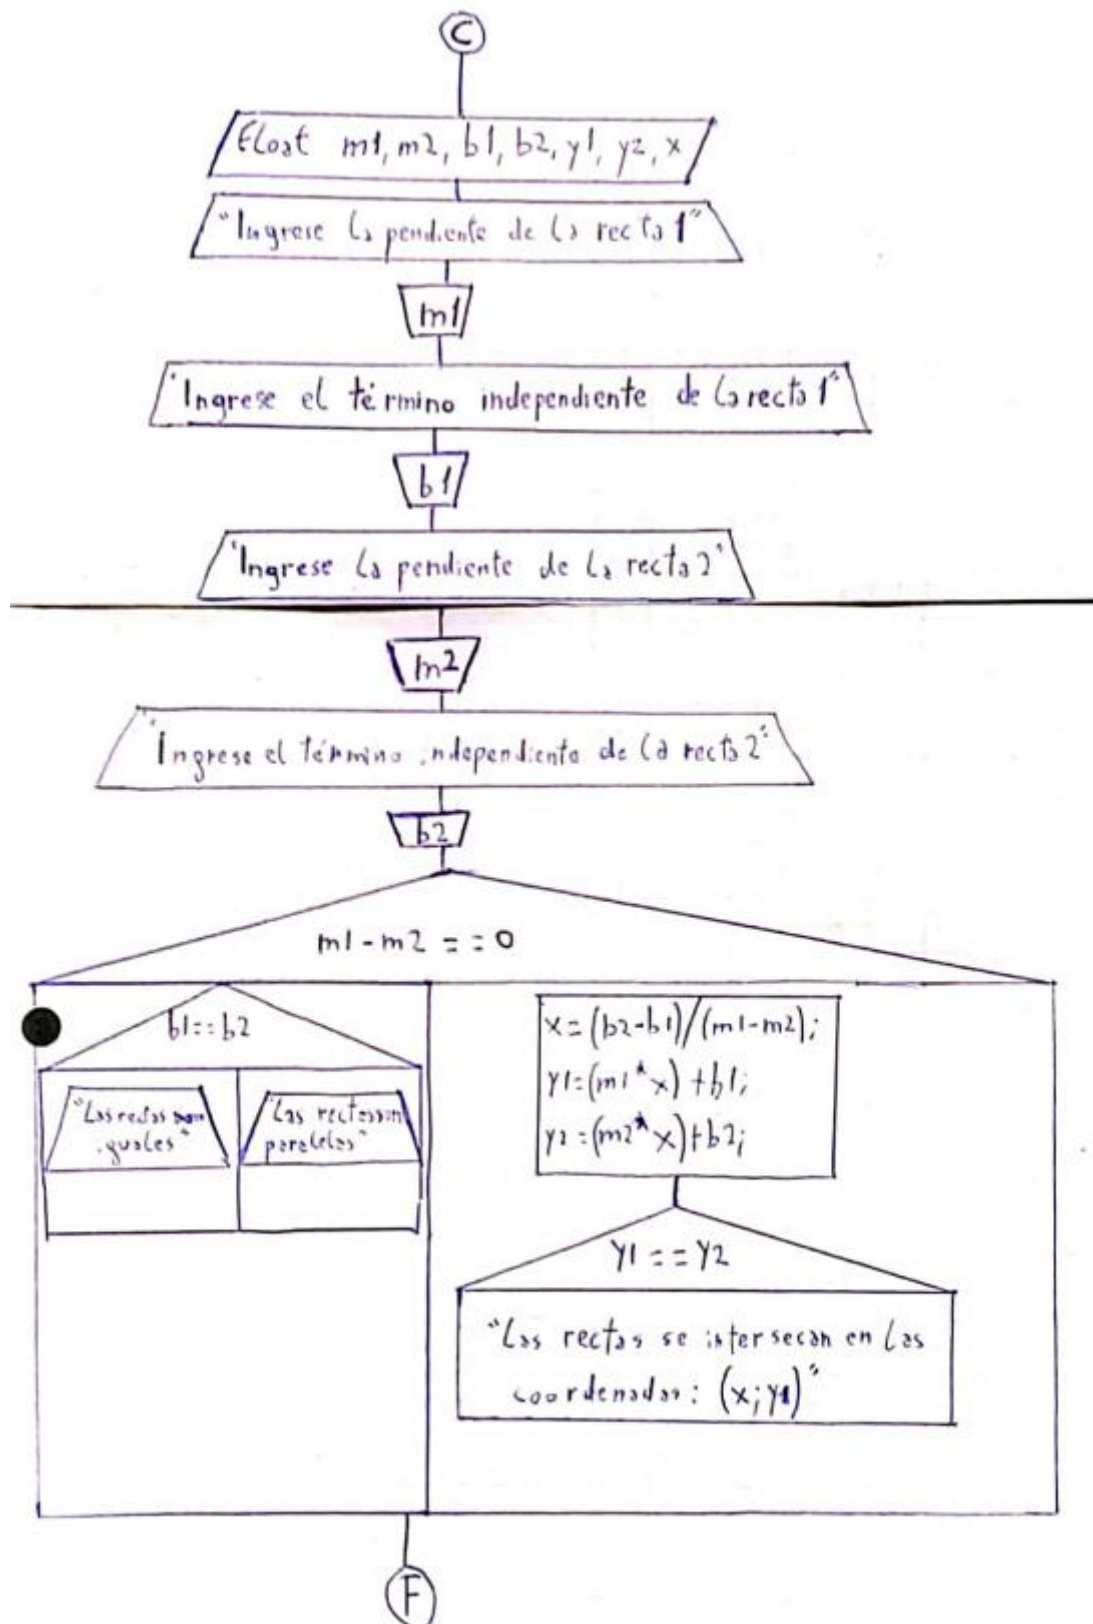 C
Float m1, m2, b1, b2, y1, y2, x
"Ingrese la pendiente de la recta 1"
m1
"Ingrese el término independiente de la recta 1"
b1
"Ingrese la pendiente de la recta 2"
m2
"Ingrese el término independiente de la recta 2"
b2
m1 - m2 == 0
b1 == b2
"Las rectas son
iguales"
"Las rectas son
paralelas"
x = (b2-b1)/(m1-m2);
y1 = (m1*x) + b1;
y2 = (m2*x) + b2;
y1 == y2
"Las rectas se intersecan en las
coordenadas: (x; y1)"
F